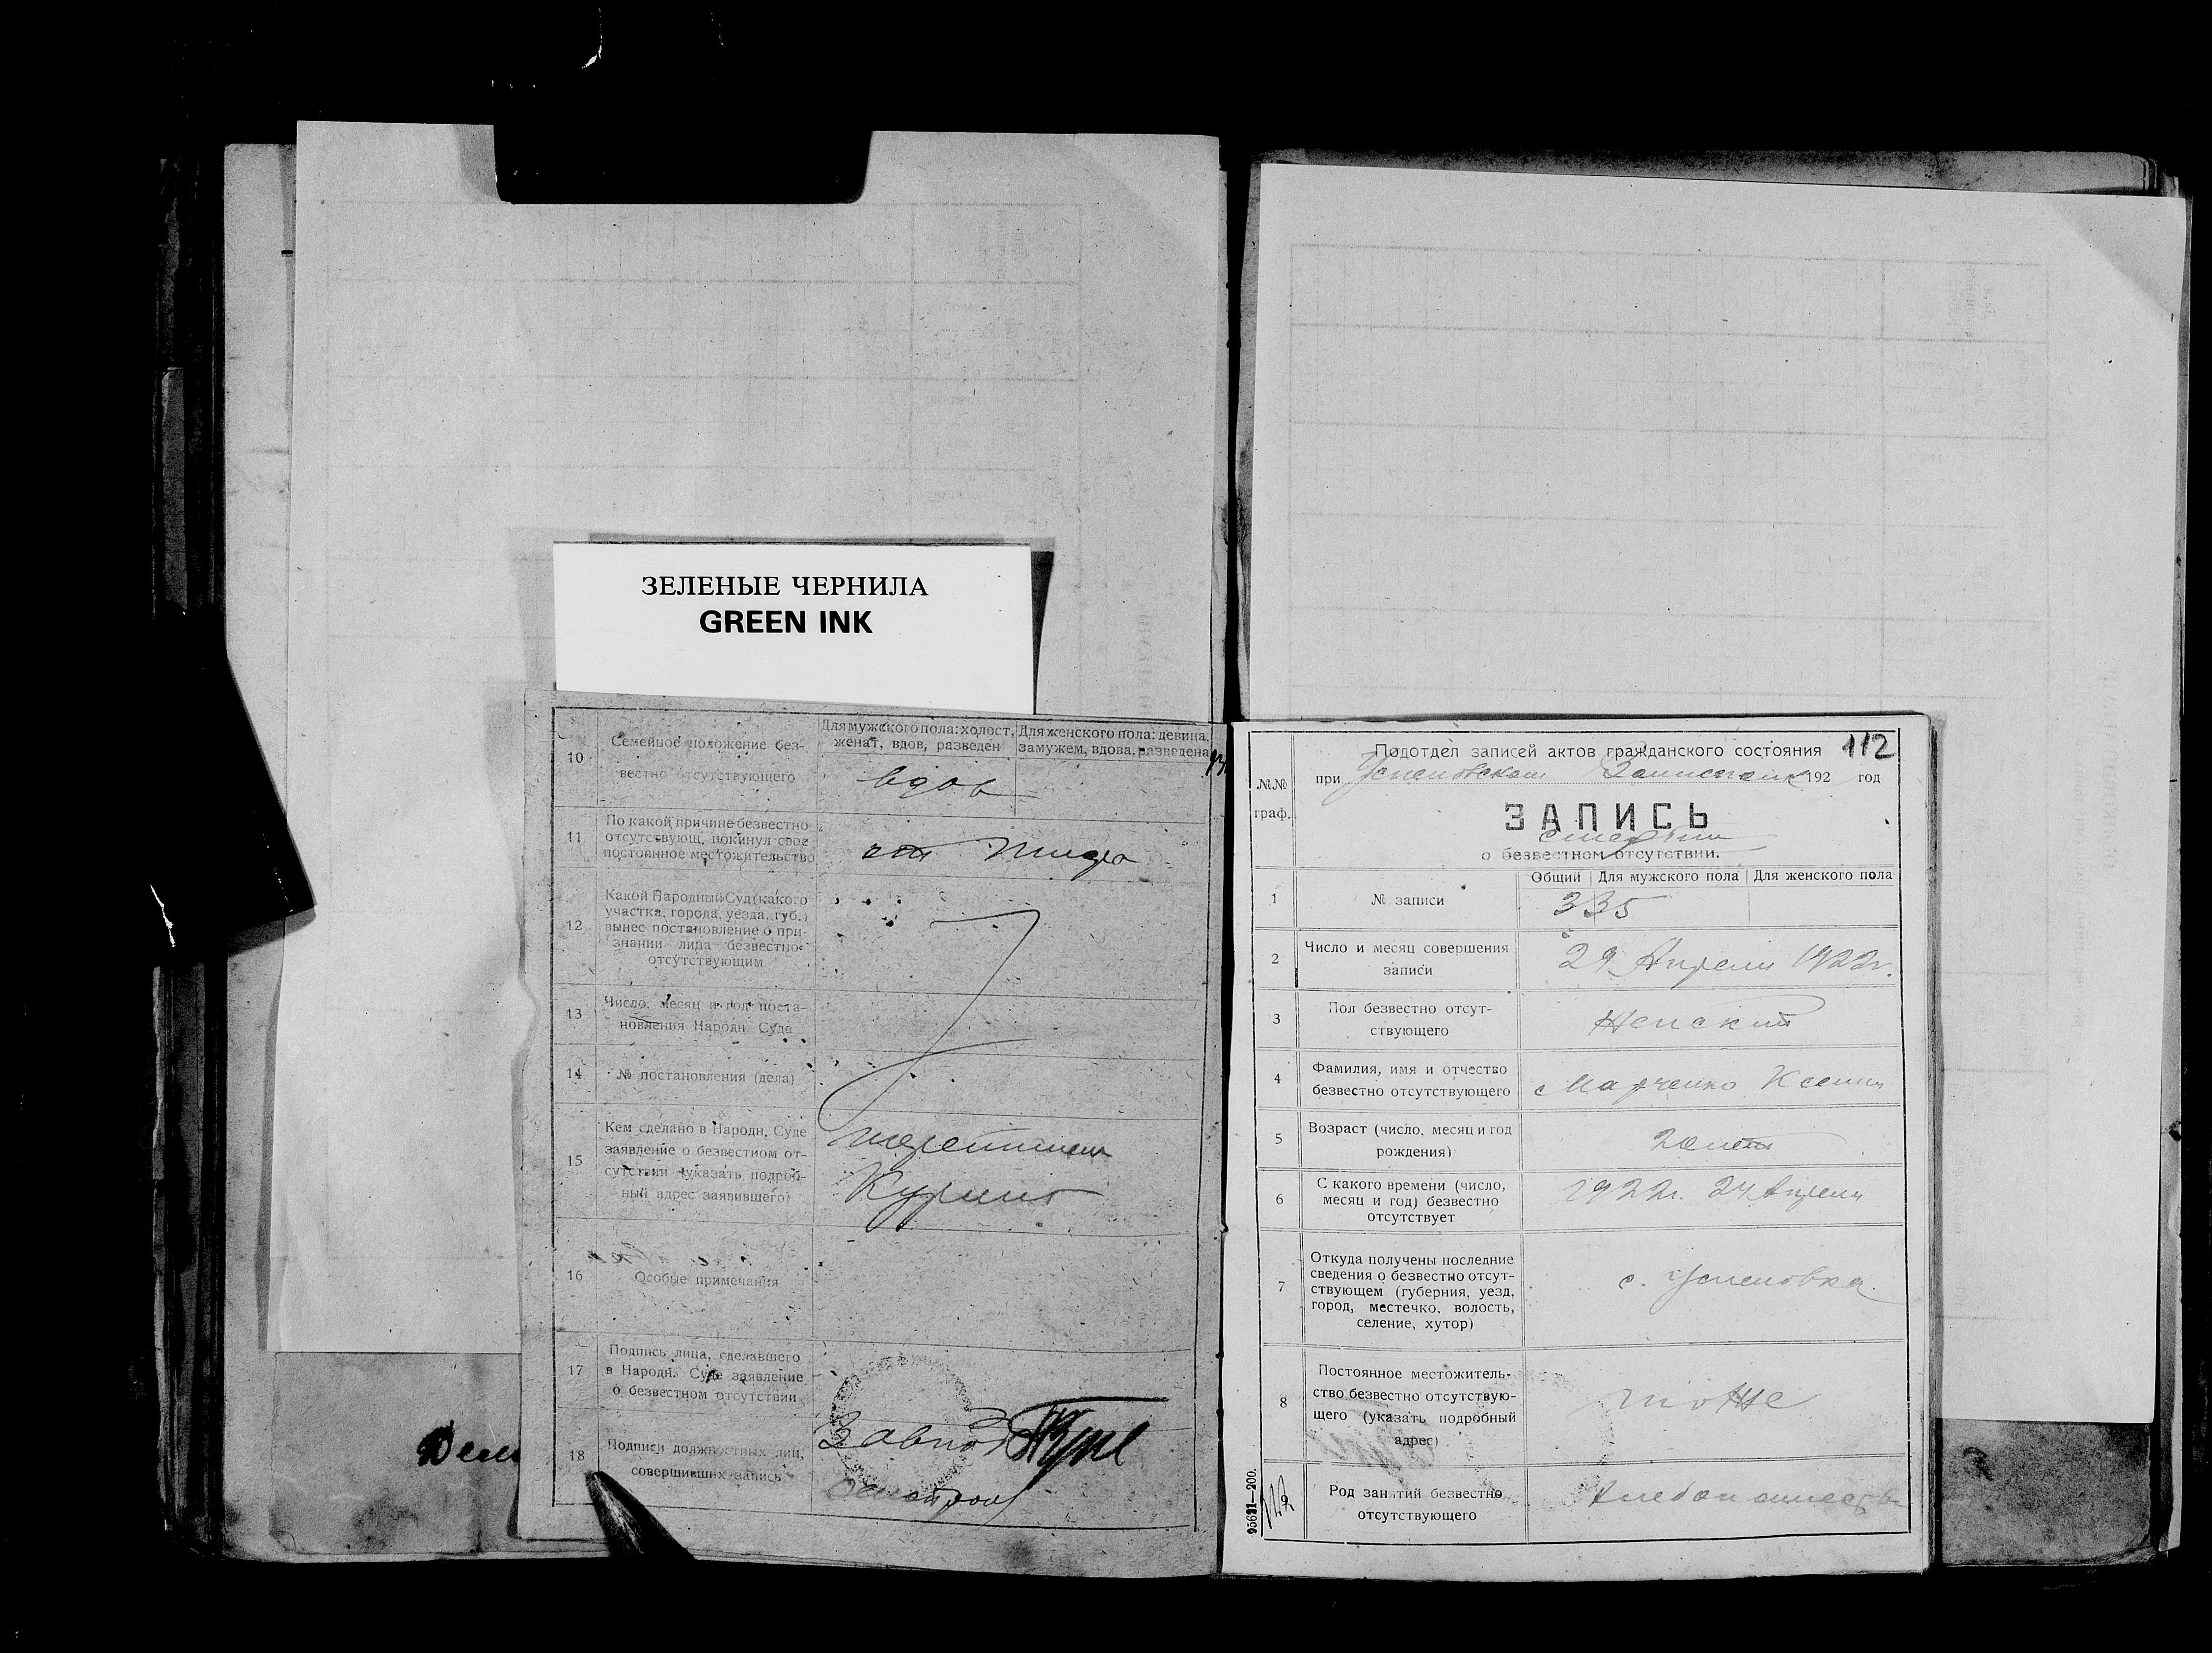 ЗЕЛЕНЫЕ ЧЕРНИЛА
GREEN INK
10
Семейное положение без-
вестно отсутствующего
Для мужского пола: холост,
женат, вдов, разведен
Для женского пола: девица,
замужем, вдова, разведена
вдов
11
По какой причине безвестно
отсутствующ. покинул свое
постоянное местожительство
от тифа
12
Какой Народный Суд (какого
участка, города, уезда, губ.)
вынес постановление о при-
знании лица безвестно-
отсутствующим
13
Число, месяц и год поста-
новления Народн. Суда
14
№ постановления (дела)
15
Кем сделано в Народн. Суде
заявление о безвестном от-
сутствии (указать подроб-
ный адрес заявившего)
16
Особые примечания
17
Подпись лица, сделавшего
в Народн. Суде заявление
о безвестном отсутствии
18
Подписи должностных лиц,
совершивших запись
Завпод
112
Подотдел записей актов гражданского состояния
при Успеновском 192 год
№№
граф.
ЗАПИСЬ
смерти
о безвестном отсутствии.
Общий Для мужского пола Для женского пола
1
№ записи
335
2
Число и месяц совершения
записи
29 Апреля 1922г.
3
Пол безвестно отсут-
ствующего
Женский
4
Фамилия, имя и отчество
безвестно отсутствующего
Марченко Ксения
5
Возраст (число, месяц и год
рождения)
20 лет
6
С какого времени (число,
месяц и год) безвестно
отсутствует
1922г. 24 Апреля
7
Откуда получены последние
сведения о безвестно отсут-
ствующем (губерния, уезд,
город, местечко, волость,
селение, хутор)
с. Успеновка
8
Постоянное местожитель-
ство безвестно отсутствую-
щего (указать подробный
адрес)
тоже
9
Род занятий безвестно
отсутствующего
95621—200.
112